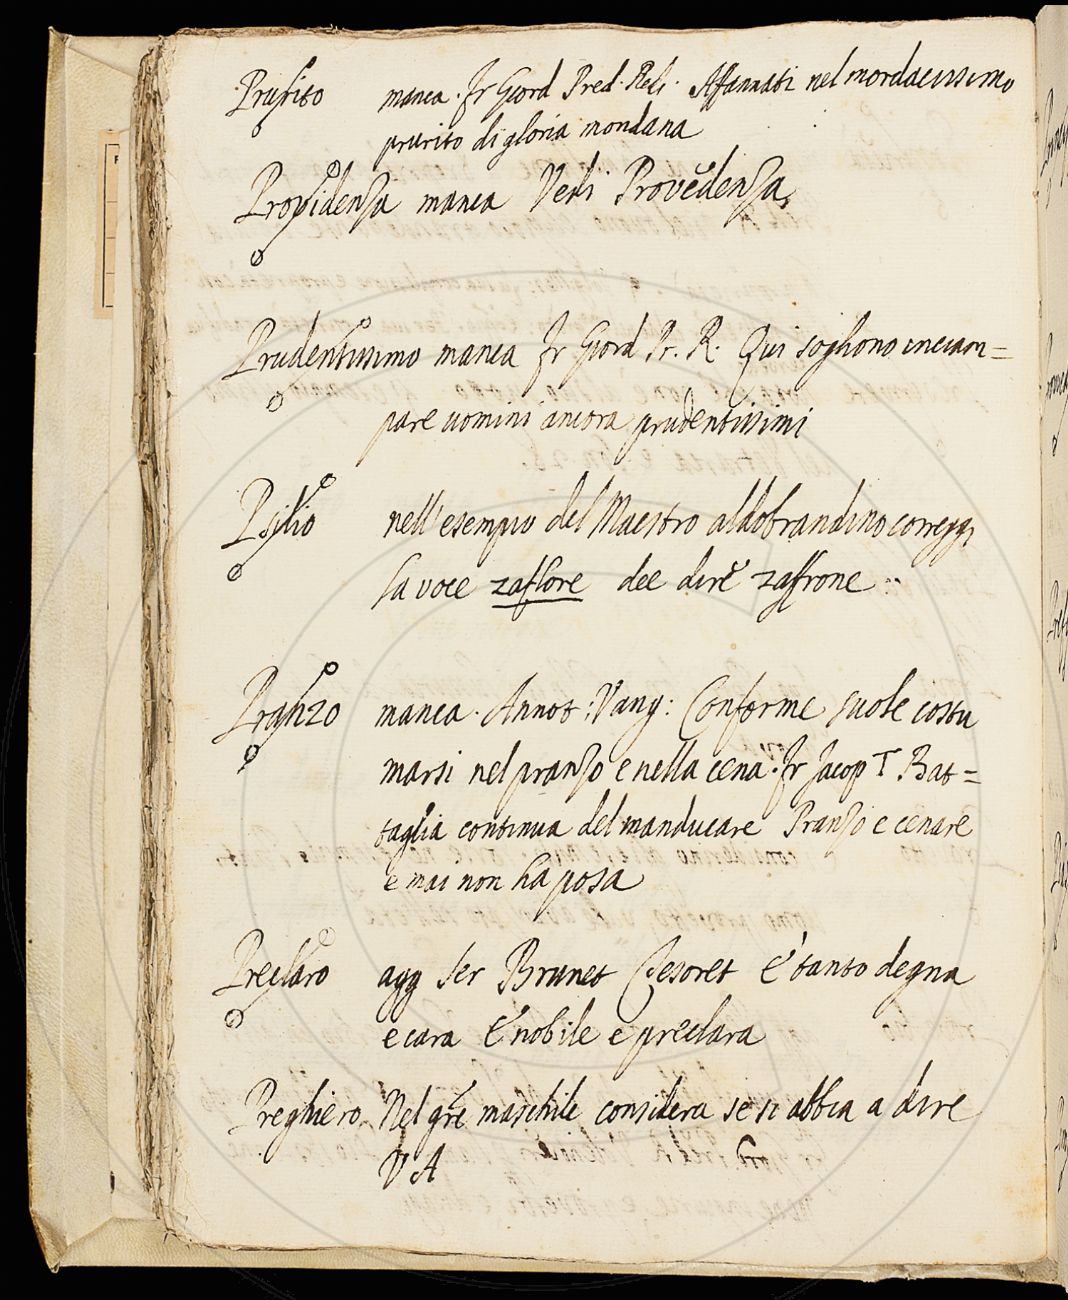 Prurito manca. Fr Giord Pred. Red. Affannati nel mordacissimo
prurito di gloria mondana
Providenza manca Vedi Provedenza
Prudentissimo manca Fr Giord Pr. R. Qui sogliono inciam=
pare uomini ancora prudentissimi
Psilio nell'esempio del Maestro aldobrandino corregg
la voce zaflore dee dire zaffrone
Pranzo manca. Annot: Vang: Conforme suole costu
marsi nel pranzo e nella cena. Fr Jacop T. Bat=
taglia continua del manducare Pranzo e cenare
e mai non ha posa
Preclaro agg Ser Brunet Tesoret E' tanto degna
e cara E' nobile e preclara
Preghiero. Nel gre maschile considera se si abbia a dire
V A